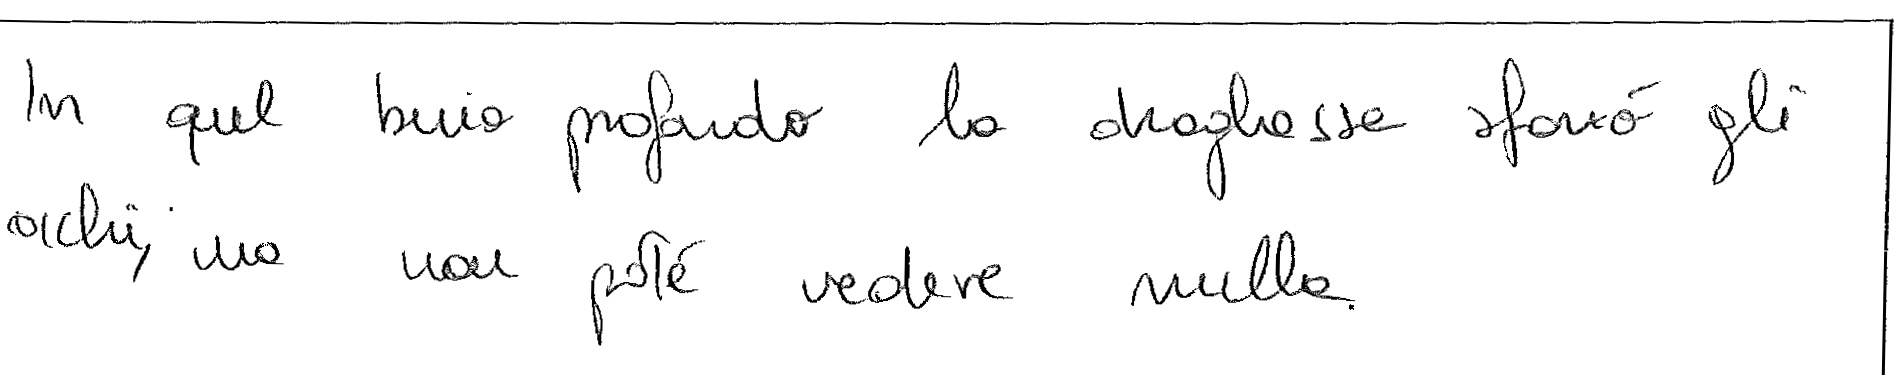 In quel buio profondo la draghessa sforzó gli
occhi, ma non poté vedere nulla.